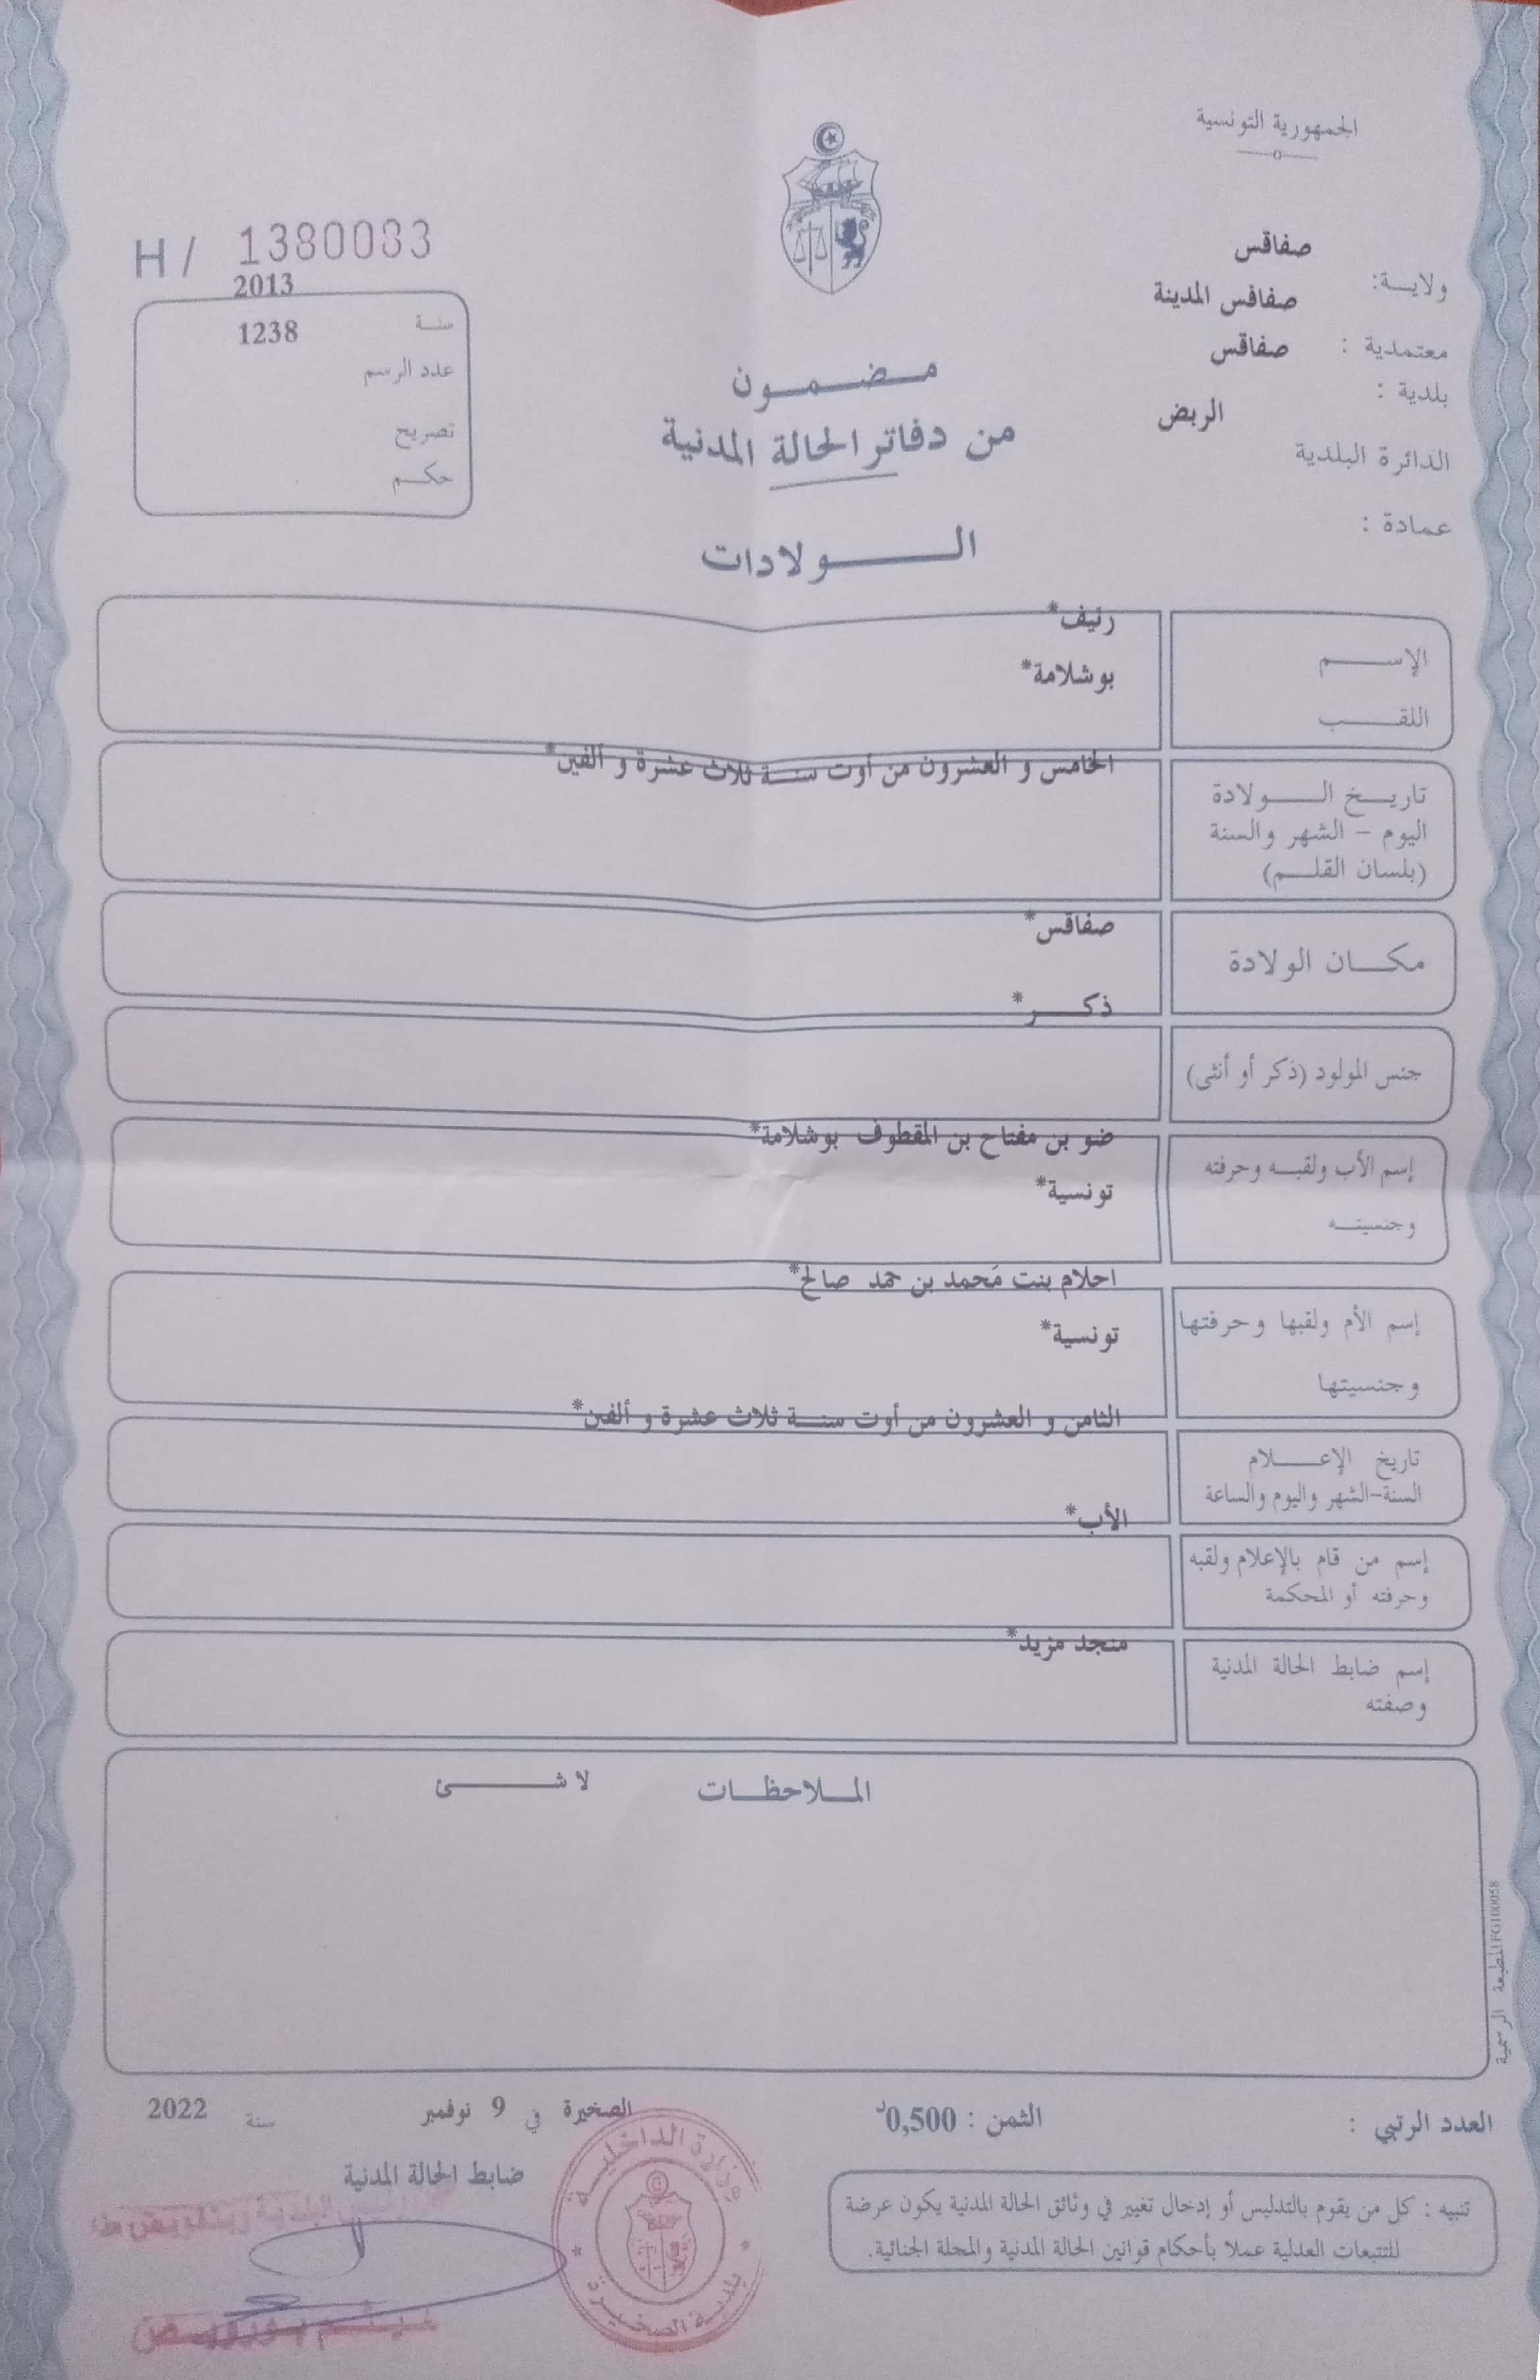 الجمهورية التونسية
H/ 1380083
ولايـــة: صفاقس
معتمدية : صفاقس المدينة
بلدية : صفاقس
الدائرة البلدية الربض
عمادة :
2013
سنـة
1238
عدد الرسم
تصريح
حكــم
مــضــمــون
من دفاتر الحالة المدنية
الــــولادات
الإســــم رئيف*
اللقــــب بوشلامة*
تاريــخ الــــولادة الخامس و العشرون من أوت سنــة ثلاث عشرة و ألفين*
اليوم – الشهر والسنة
(بلسان القلــم)
مكــان الولادة صفاقس*
جنس المولود (ذكر أو أنثى) ذكــر*
إسم الأب ولقبــه وحرفته ضو بن مفتاح بن المقطوف بوشلامة*
وجنسيتــه تونسية*
إسم الأم ولقبها وحرفتها احلام بنت مَحمد بن حمد صالح*
وجنسيتها تونسية*
تاريخ الإعــــلام الثامن و العشرون من أوت سنــة ثلاث عشرة و ألفين*
السنة-الشهر واليوم والساعة
إسم من قام بالإعلام ولقبه الأب*
وحرفته أو المحكمة
إسم ضابط الحالة المدنية منجد مزيد*
وصفته
المــلاحظــات لاشـــــئ
المطبعة الرسمية FG100058
العدد الرتبي :
الثمن : 0,500د
الصخيرة في 9 نوفمبر سنة 2022
ضابط الحالة المدنية
وزارة الداخليــة
بلدية الصخيرة
تنبيه : كل من يقوم بالتدليس أو إدخال تغيير في وثائق الحالة المدنية يكون عرضة
للتتبعات العدلية عملا بأحكام قوانين الحالة المدنية والمجلة الجنائية.